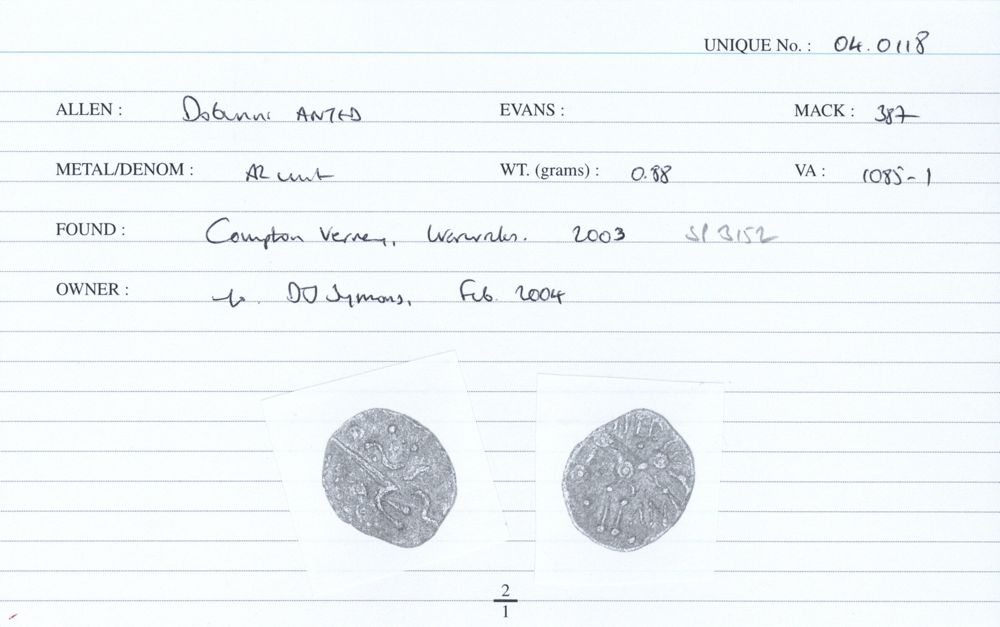 UNIQUE No. : 04.0118
ALLEN : Dobunni ANTED EVANS : MACK : 387
METAL/DENOM : AR unit WT. (grams) : 0.88 VA : 1085-1
FOUND : Compton Verney, Warwicks. 2003 SP 3152
OWNER : DJ Symons, Feb. 2004
2
1